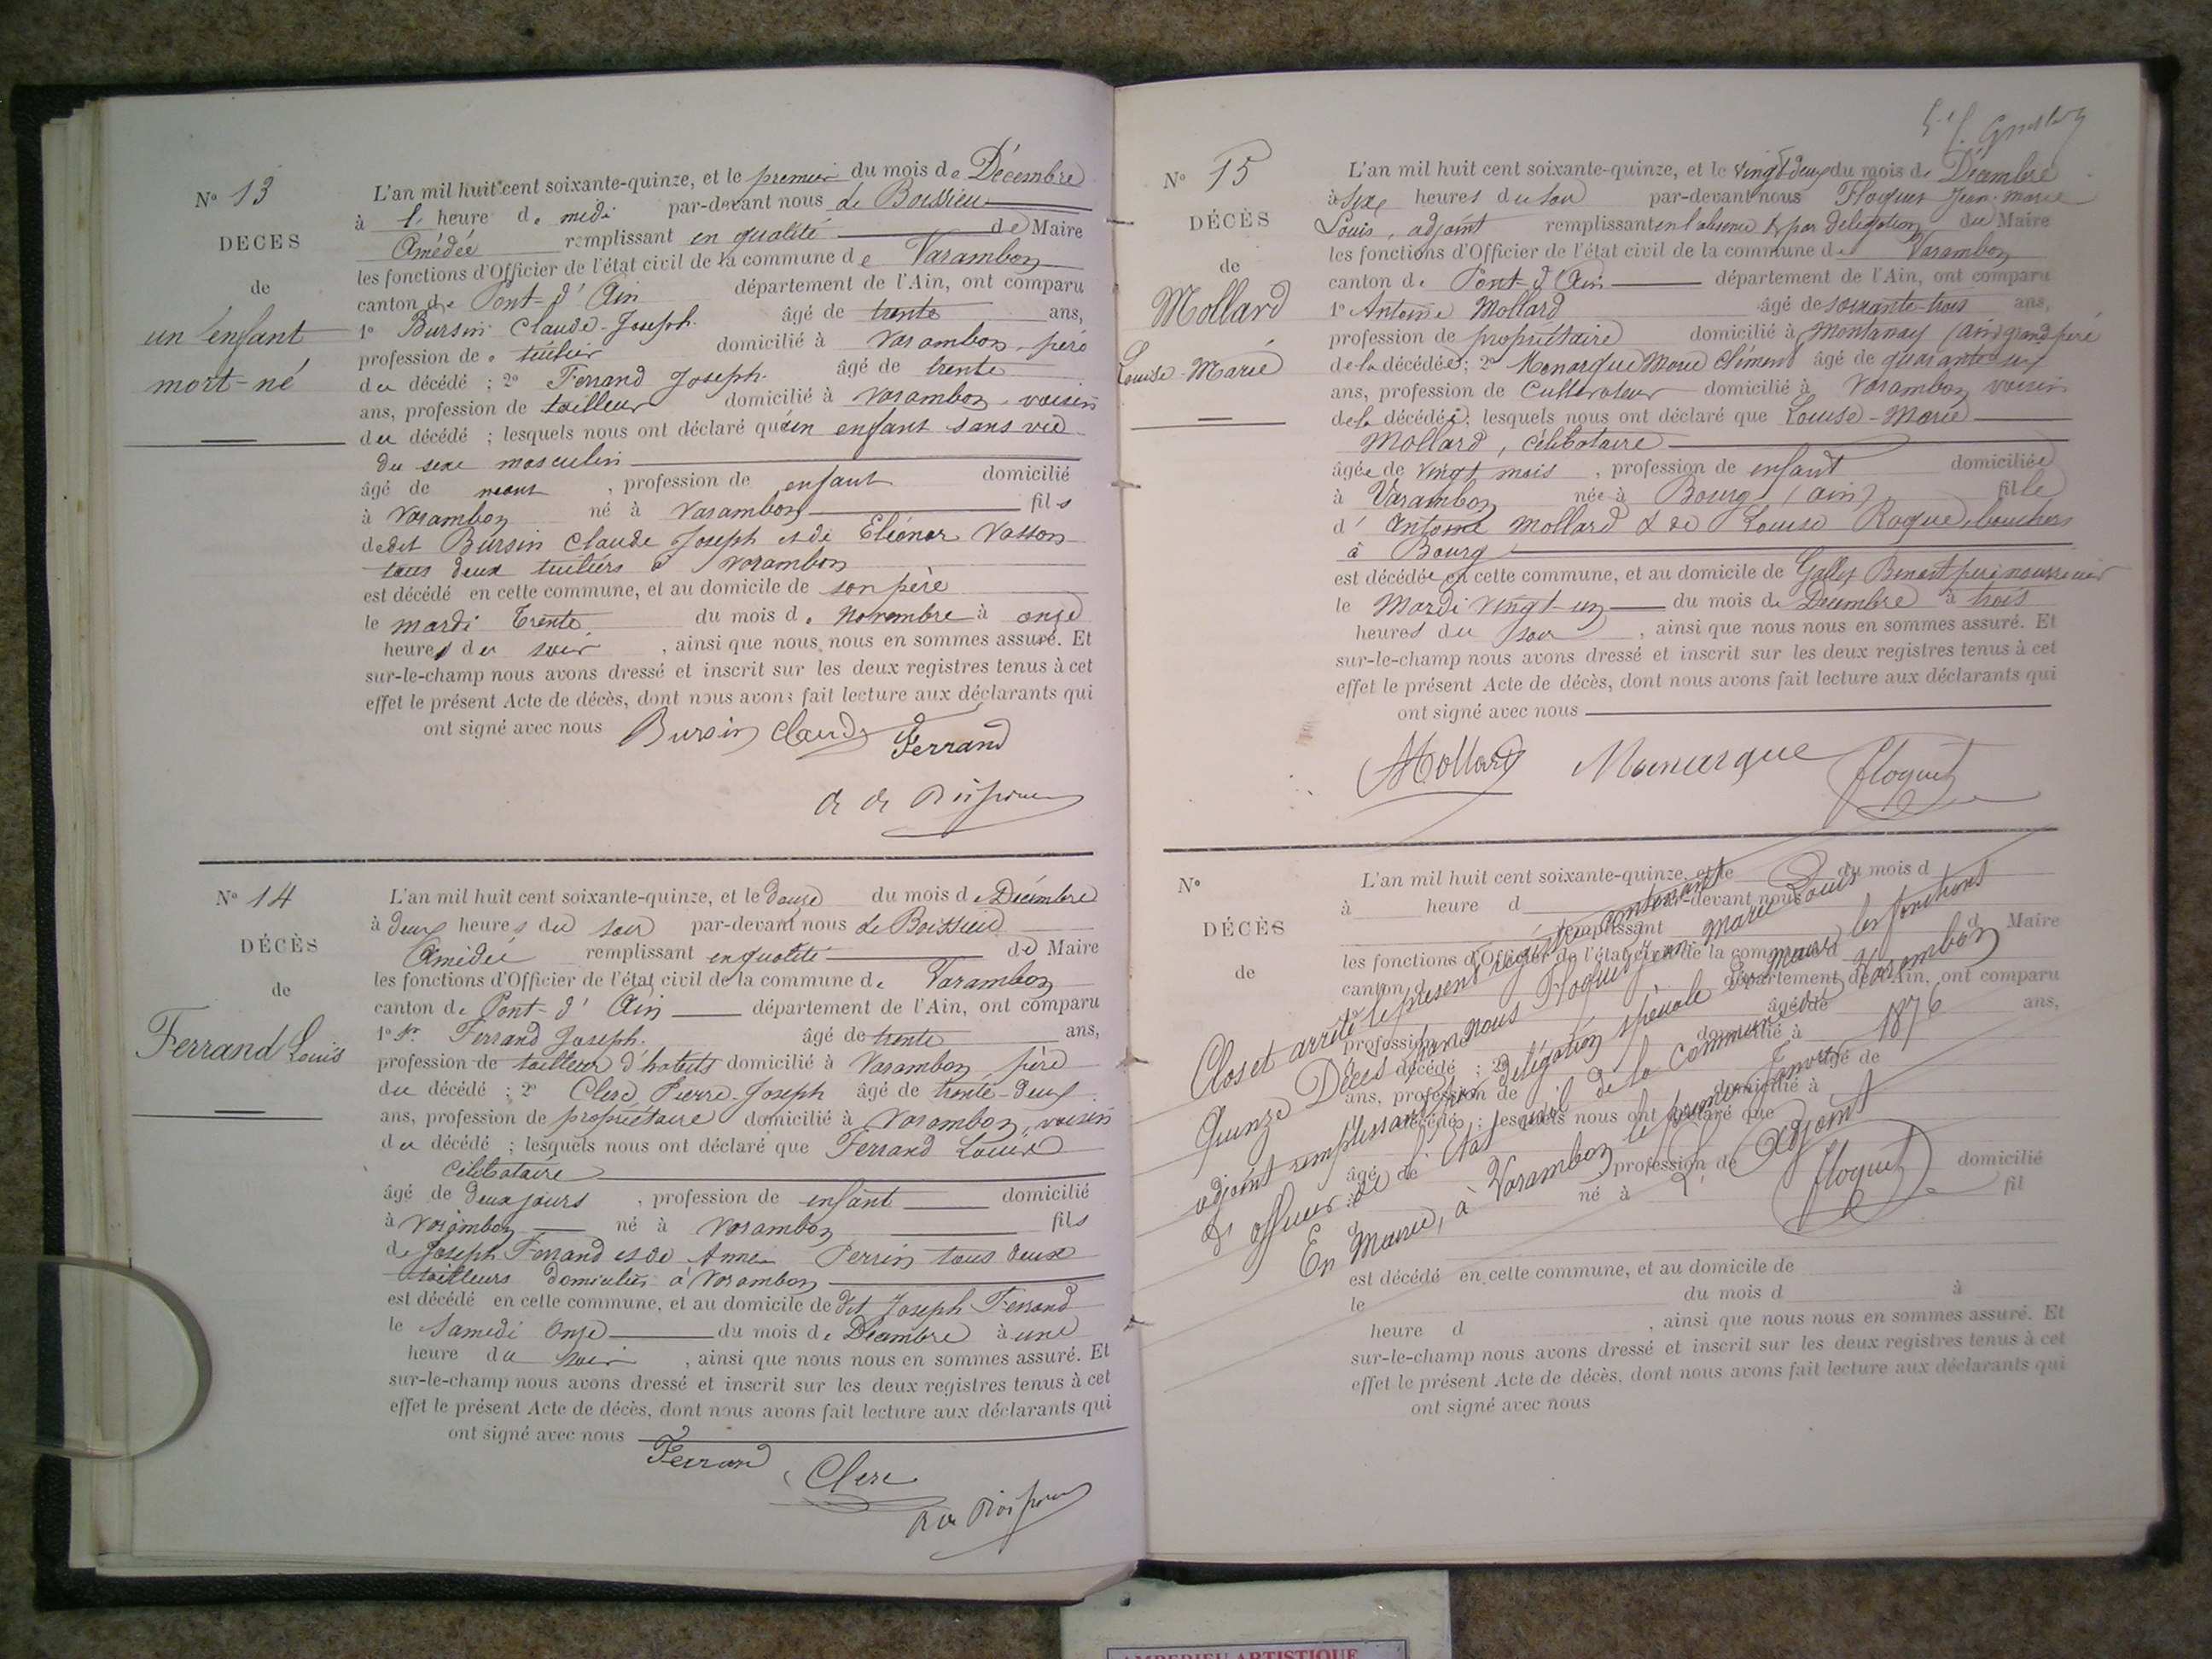 N° 13
DECES
de
un enfant
mort-né
L'an mil huit cent soixante-quinze, et le premier du mois de Décembre
à 1 heure de midi par-devant nous de Boissieu
Amédée remplissant en qualité de Maire
les fonctions d'Officier de l'état civil de la commune de Varambon
canton de Pont-d'Ain département de l'Ain, ont comparu
1° Bursin Claude-Joseph. âgé de trente ans,
profession de tuilier domicilié à Varambon, père
du décédé ; 2° Ferrand Joseph. âgé de trente
ans, profession de tailleur domicilié à Varambon, voisin
du décédé ; lesquels nous ont déclaré qu'un enfant sans vie
du sexe masculin
âgé de , profession de enfant domicilié
à Varambon né à Varambon fils
de dit Bursin Claude Joseph et de Eléonor Vasson
tous deux tuiliers à Varambon
est décédé en cette commune, et au domicile de son père
le mardi trente du mois de Novembre à onze
heures du soir, ainsi que nous nous en sommes assuré. Et
sur-le-champ nous avons dressé et inscrit sur les deux registres tenus à cet
effet le présent Acte de décès, dont nous avons fait lecture aux déclarants qui
ont signé avec nous Bursin Claude Ferrand
N° 14
DÉCÈS
de
Ferrand Louis
L'an mil huit cent soixante-quinze, et le douze du mois de Décembre
à deux heures du soir par-devant nous de Boissieu
Amédée remplissant en qualité de Maire
les fonctions d'Officier de l'état civil de la commune de Varambon
canton de Pont-d'Ain département de l'Ain, ont comparu
1° Sr Ferrand Joseph. âgé de trente ans,
profession de tailleur d'habits domicilié à Varambon, père
du décédé ; 2° Clerc Pierre-Joseph âgé de trente-deux
ans, profession de propriétaire domicilié à Varambon, voisin
du décédé ; lesquels nous ont déclaré que Ferrand Louis
célibataire
âgé de deux jours, profession de enfant domicilié
à Varambon né à Varambon fils
de Joseph Ferrand et de Anne Perrin tous deux
tailleurs domiciliés à Varambon
est décédé en cette commune, et au domicile de dit Joseph Ferrand
le Samedi onze du mois de Décembre à une
heure du soir, ainsi que nous nous en sommes assuré. Et
sur-le-champ nous avons dressé et inscrit sur les deux registres tenus à cet
effet le présent Acte de décès, dont nous avons fait lecture aux déclarants qui
ont signé avec nous
Ferrand
Clerc
N° 15
DÉCÈS
de
Mollard
Louise-Marie
L'an mil huit cent soixante-quinze, et le vingt-deux du mois de Décembre
à six heures du soir par-devant nous Floquet Jean-Marie
Louis, adjoint remplissant en l'absence & par délégation du Maire
les fonctions d'Officier de l'état civil de la commune de Varambon
canton de Pont-d'Ain département de l'Ain, ont comparu
1° Antoine Mollard âgé de soixante-trois ans,
profession de propriétaire domicilié à Montanay (ain) grand père
de la décédée ; 2° Marie Clément âgé de quarante-six
ans, profession de Cultivateur domicilié à Varambon voisin
de la décédée ; lesquels nous ont déclaré que Louise-Marie
Mollard, célibataire
âgée de vingt mois, profession de enfant domiciliée
à Varambon née à Bourg (ain) fille
d'Antoine Mollard & de Louise Roque, bouchers
à Bourg
est décédée en cette commune, et au domicile de Gallet Benoit père nourricier
le Mardi vingt-un du mois de Décembre à trois
heures du soir, ainsi que nous nous en sommes assuré. Et
sur-le-champ nous avons dressé et inscrit sur les deux registres tenus à cet
effet le présent Acte de décès, dont nous avons fait lecture aux déclarants qui
ont signé avec nous
Mollard Floquet
N°
DÉCÈS
de
L'an mil huit cent soixante-quinze, et le du mois d
à heure d par-devant nous
remplissant d Maire
les fonctions d'Officier de l'état civil de la commune d
canton d département de l'Ain, ont comparu
1° âgé de ans,
profession de domicilié à
décédé ; 2° âgé de
ans, profession de domicilié à
décédé ; lesquels nous ont déclaré que
âgé de profession de domicilié
à né à fil
d
est décédé en cette commune, et au domicile de
le du mois d à
heure d , ainsi que nous nous en sommes assuré. Et
sur-le-champ nous avons dressé et inscrit sur les deux registres tenus à cet
effet le présent Acte de décès, dont nous avons fait lecture aux déclarants qui
ont signé avec nous
Clos et arrêté le présent registre contenant
Quinze Décès par nous Floquet Jean Marie Louis
adjoint remplissant par délégation spéciale du maire les fonctions
d'officier de l'état civil de la commune de Varambon
En Mairie, à Varambon le premier Janvier 1876
L'Adjoint
Floquet
AMBERIEU ARTISTIQUE